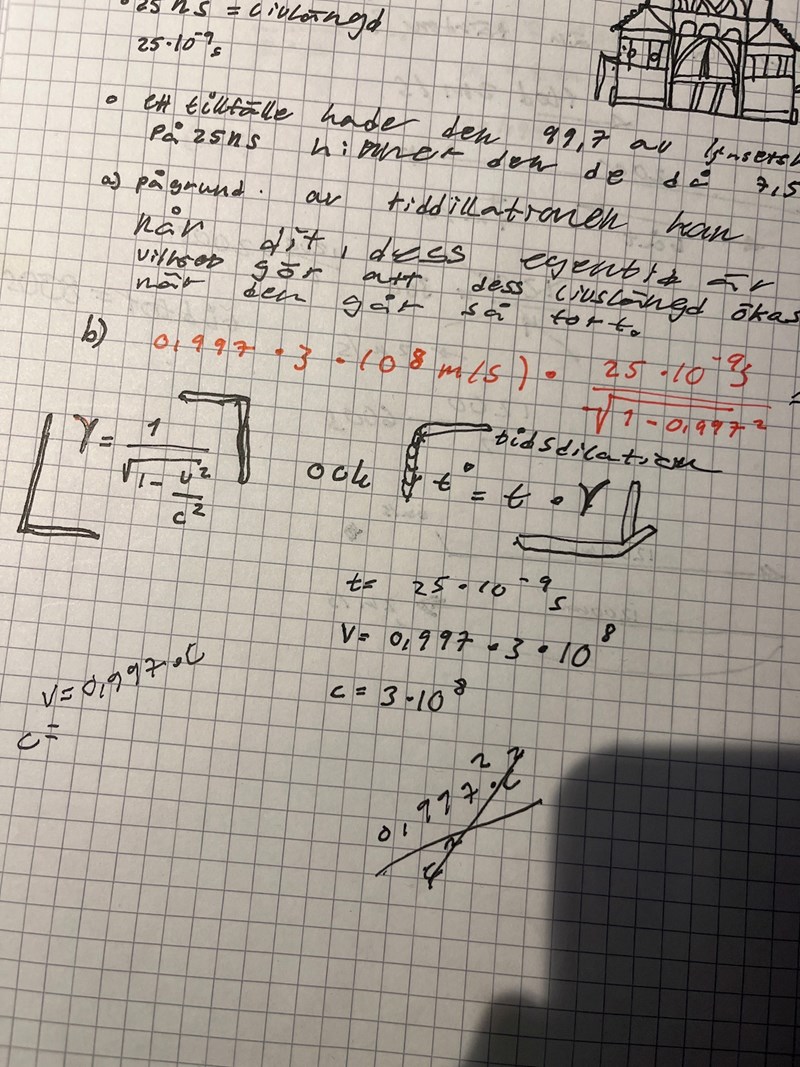 25 ns = Livslängd
25·10⁻⁹ s
ett tillfälle hade den 99,7 av
På 25ns hinner den de då 7,5
a) på grund. av tiddillationen kan
når dit, dess egentid är
vilket gör att dess livslängd ökas
när den går så fort.
b) 0,997 · 3 · 10⁸ m/s) · 25 · 10⁻⁹ s / √(1 - 0,997²) =
γ = 1 / √(1 - v²/c²) och tidsdilatation
t° = t · γ
t = 25 · 10⁻⁹ s
v = 0,997 · 3 · 10⁸
v = 0,997 · c
c = 3 · 10⁸
c =
0,997² · c²